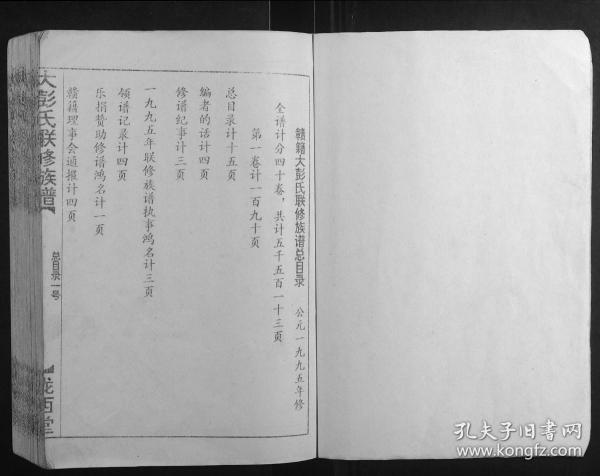 赣籍大彭氏联修族谱总目录 公元一九九五年修
全谱计分四十卷，共计五千五百一十三页
第一卷计一百九十页
总目录计十五页
编者的话计四页
修谱纪事计三页
一九九五年联修族谱执事鸿名计三页
领谱记录计四页
乐捐赞助修谱鸿名计一页
赣籍理事会通报计四页
大彭氏联修族谱
总目录一号
陇西堂
孔夫子旧书网
www.kongfz.com